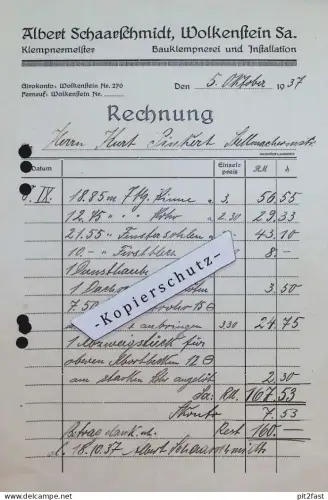 Albert Schaarschmidt, Wolkenstein Sa.
Klempnermeister Bauklempnerei und Installation
Girokonto: Wolkenstein Nr. 270
Fernruf: Wolkenstein Nr.
Den 5. Oktober 1937
Rechnung
Herrn Kurt Stellmachermstr.
Datum Einzelpreis RM ₰
IX. 18.85 m Rinne a 3. 56.55
12.75 " " Rohr a 2.30 29.33
21.55 " Fenstersohlen a 2 43.10
10.- " Firstblech 8.-
1 Dunsthaub
1 3.50
7.50
anbringen 3,30 24.75
1 Abzweigstück für
oberen 12
am starken Rohr angelöt 2.30
Sa: RM. 167.53
Skonto 7.53
Betrag dank. erh. Rest 160.-
d. 18.10.37 Albert Schaarschmidt
-Kopierschutz-
www.pit2fast.com